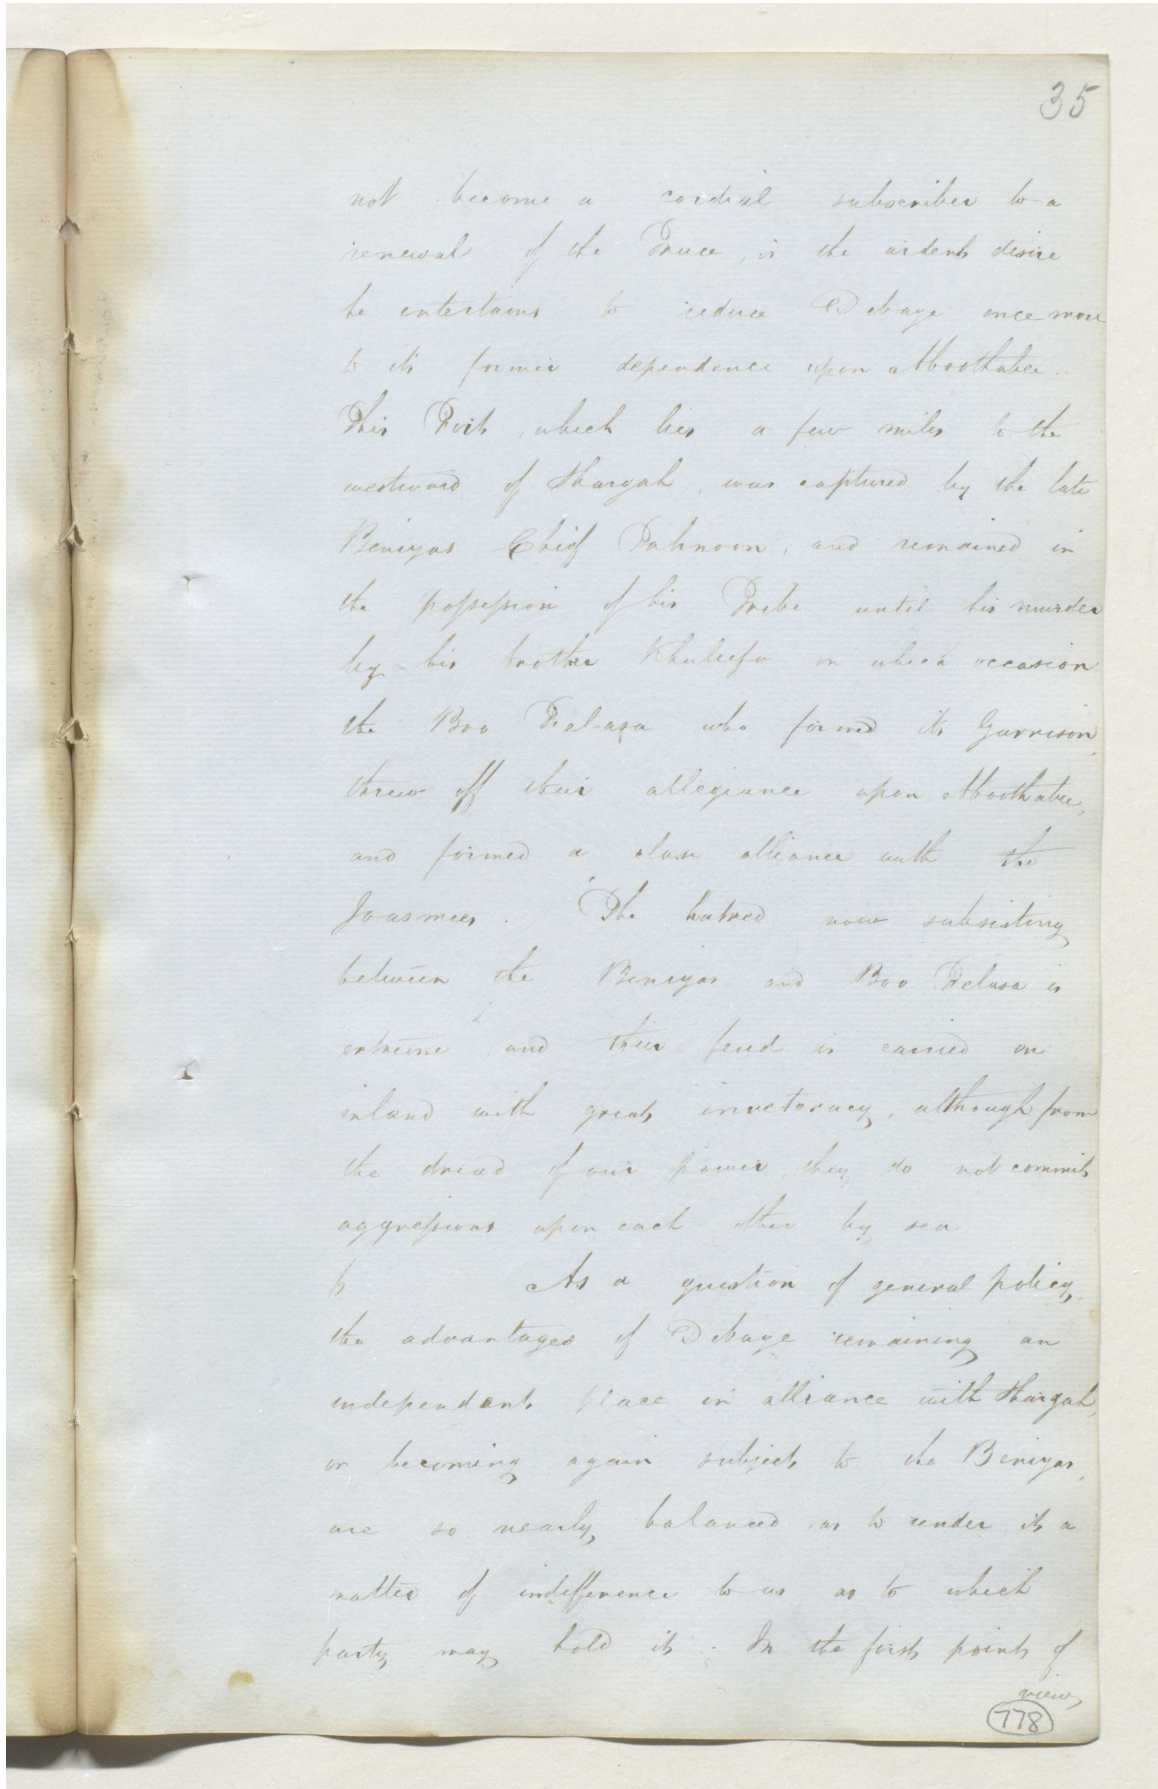 35
not become a cordial subscriber to a
renewal of the Truce, is the ardent desire
he entertains to reduce Debaye once more
to its former dependence upon Aboothabee.
This Port, which lies a few miles to the
westward of Shargah, was captured by the late
Beniyas Chief Tahnoon, and remained in
the possession of his Tribe until his murder
by his brother Khuleefa on which occasion
the Boo Felasa who formed its Garrison,
threw off their allegiance upon Aboothabee,
and formed a close alliance with the
Joasmees. The hatred now subsisting
between the Beniyas and Boo Felasa is
extreme, and their feud is carried on
inland with great inveteracy, although from
the dread of our power they do not commit
aggressions upon each other by sea.
6 As a question of general policy,
the advantages of Debaye remaining an
independant place in alliance with Shargah,
or becoming again subject to the Beniyas,
are so nearly balanced as to render it a
matter of indifference to us as to which
party may hold it. In the first point of
view,
778